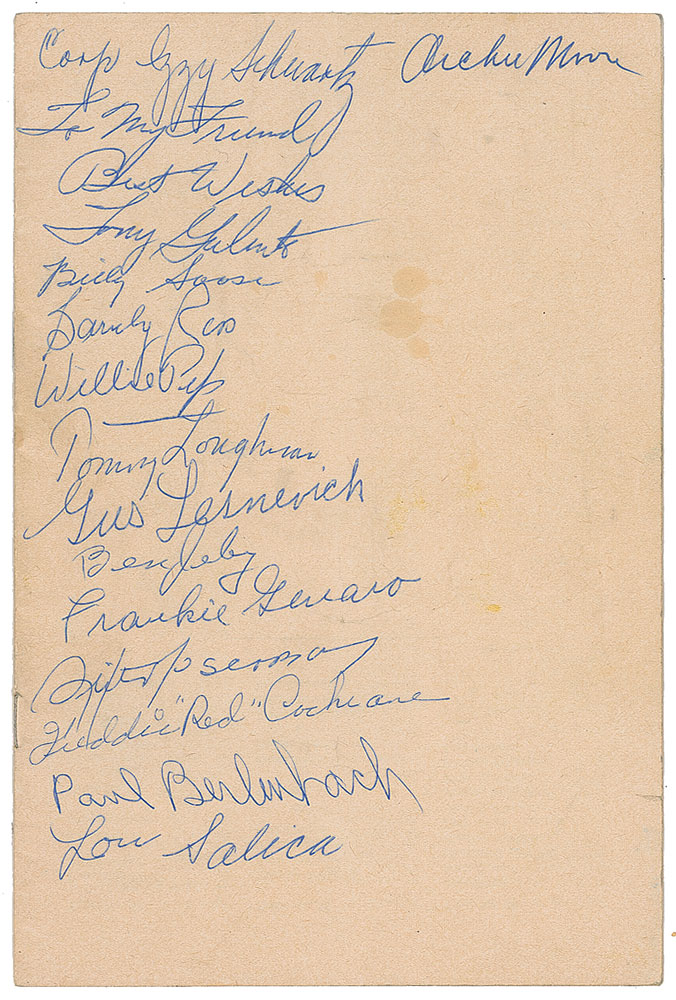 Corp Izzy Schwartz Archie Moore
To My Friend
Best Wishes
Tony Galento
Billy Soose
Sandy
Willie Pep
Tommy Loughran
Gus Lesnevich
Frankie Genaro
Freddie "Red" Cochrane
Paul Berlenbach
Lou Salica